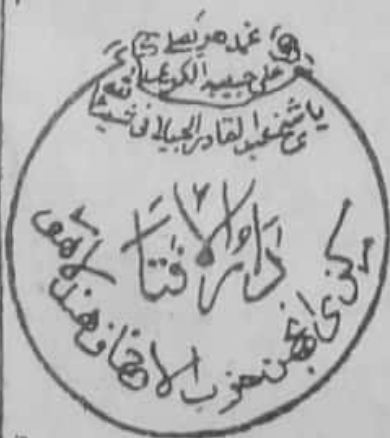 نحمده ونصلی
علی حبیبہ الکریم
یا شیخ عبد القادر الجیلانی شیئا
دار الافتاء
مرکزی انجمن حزب الاحناف ہند لاہور